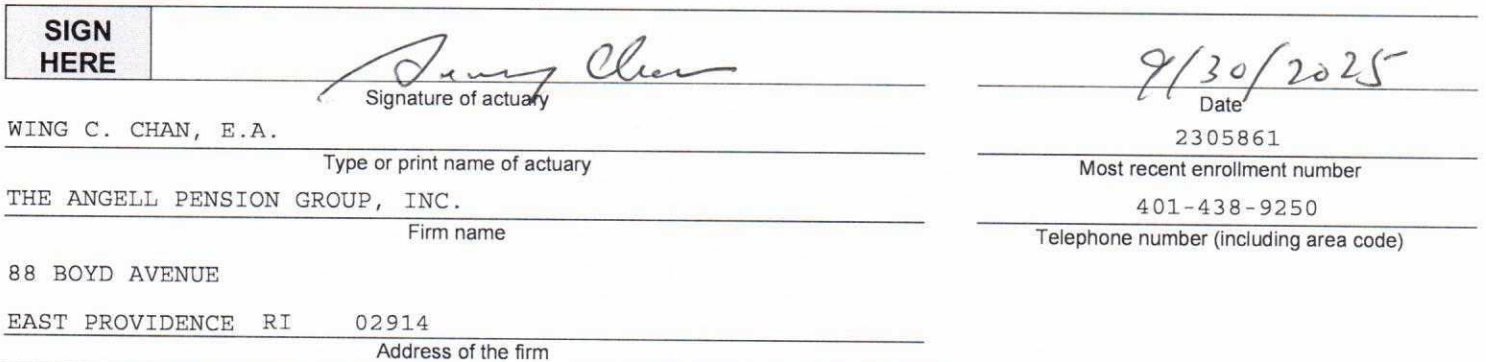 SIGN
HERE
Chan 9/30/2025
Signature of actuary Date
WING C. CHAN, E.A. 2305861
Type or print name of actuary Most recent enrollment number
THE ANGELL PENSION GROUP, INC. 401-438-9250
Firm name Telephone number (including area code)
88 BOYD AVENUE
EAST PROVIDENCE RI 02914
Address of the firm